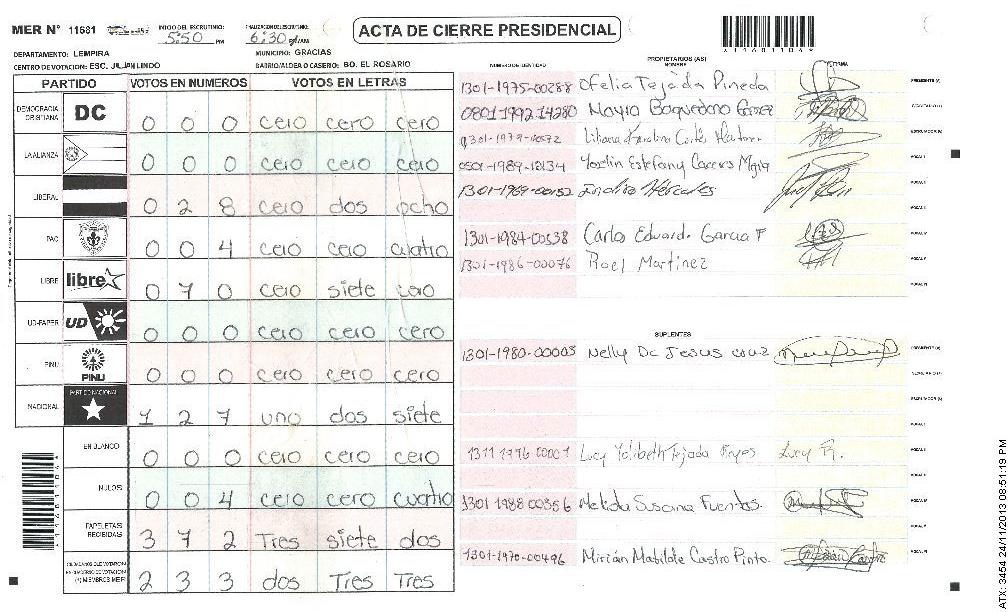 MER Nº 11681
INICIO DEL ESCRUTINIO: 5:50 PM
FINALIZACION DEL ESCRUTINIO: 6:30 PM
ACTA DE CIERRE PRESIDENCIAL
DEPARTAMENTO: LEMPIRA
MUNICIPIO: GRACIAS
CENTRO DE VOTACION: ESC. JULIAN LINDO
BARRIO/ALDEA O CASERIO: BO. EL ROSARIO
PARTIDO VOTOS EN NUMEROS VOTOS EN LETRAS
DEMOCRACIA CRISTIANA DC 0 0 0 cero cero cero
LA ALIANZA 0 0 0 cero cero cero
LIBERAL 0 2 8 cero dos ocho
PAC 0 0 4 cero cero cuatro
LIBRE libre 0 7 0 cero siete cero
UD-FAPER UD 0 0 0 cero cero cero
PINU PINU 0 0 0 cero cero cero
NACIONAL PARTIDO NACIONAL 1 2 7 uno dos siete
EN BLANCO 0 0 0 cero cero cero
NULOS 0 0 4 cero cero cuatro
PAPELETAS RECIBIDAS 3 7 2 Tres siete dos
2 3 3 dos Tres Tres
PROPIETARIOS (AS)
NUMERO DE IDENTIDAD NOMBRE FIRMA
1301-1975-00288 Ofelia Tejada Pineda
0801 1992 14280 Mayra Baquedano
Liliana Karolina Cortés
0501-1989-12134 Yoslin Estefany Caceres Mejia
1301-1969-00152
1301-1984-00538 Carlos Eduardo Garcia F
1301-1986-00076 Roel Martinez
SUPLENTES
1301-1980-00003 Nelly De Jesus cruz
1311 1976 00001 Lucy Yolibeth Tejada Reyes Lucy R.
1301 1988 00356 Melida Susana Fuentes.
1301-1970-00496 Mirian Matilde Castro Pinto.
ATX: 3454 24/11/2013 08:51:19 PM